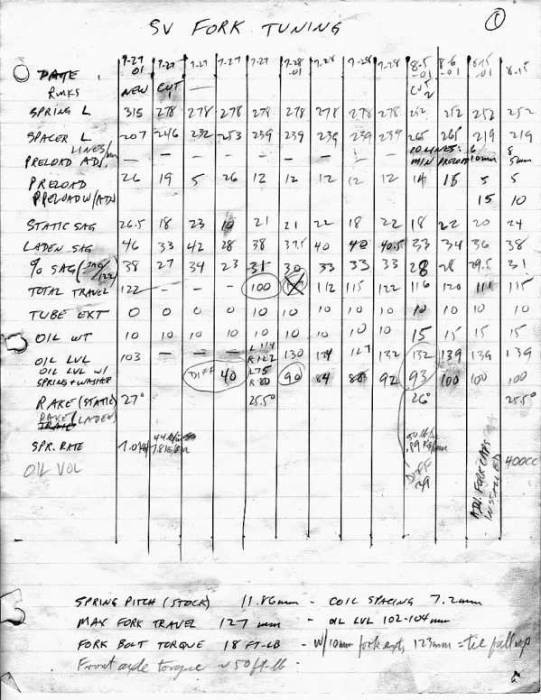 SV FORK TUNING
①
DATE 7-27-01 7-27 7-27 7-27 7-27 7-28-01 7-28 7-28 7-28 8-5-01 8-6-01 8-15-01 8-15
RMKS NEW CUT 1 CUT 2
SPRING L 315 278 278 278 278 278 278 278 278 252 252 252 252
SPACER L 207 246 232 253 239 239 239 239 239 265 265 219 219
LINES/mm 10 LINES: 6 8
PRELOAD ADJ. — — — — — — — — — MIN PRELOAD 10mm 5mm
PRELOAD 26 19 5 26 12 12 12 12 12 14 15 5 5
PRELOAD W/ADJ 15 10
STATIC SAG 26.5 18 23 10 21 21 22 18 22 18 22 20 24
LADEN SAG 46 33 42 28 38 37.5 40 40 40.5 33 34 36 38
% SAG (SAG/122) 38 27 34 23 31 30 33 33 33 28 28 29.5 31
TOTAL TRAVEL 122 — — — 100 112 115 122 116 120 111 115
TUBE EXT 0 0 0 0 10 10 10 10 10 10 10 10 10
OIL WT 10 10 10 10 10 10 10 10 10 15 15 15 15
L 114
OIL LVL 103 — — — R 122 130 124 127 132 132 139 139 139
OIL LVL W/ L 75
SPRING + WASHER DIFF 40 R 80 90 84 88 92 93 100 100 100
RAKE (STATIC) 27° 25.5° 26° 25.5°
RAKE (LADEN)
SPR. RATE
OIL VOL 400CC
ADJ. FORK CAPS INSTALLED
SPRING PITCH (STOCK) 11.86mm - COIL SPACING 7.2mm
MAX FORK TRAVEL 127 mm - OIL LVL 102-104mm
FORK BOLT TORQUE 18 FT-LB - W/10mm fork ext, 123mm =
Front axle torque ~ 50 ft-lb -